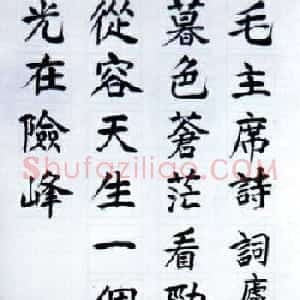 毛主席詩詞廬
暮色蒼茫看勁
從容天生一個
光在險峰
Shufaziliao.COM